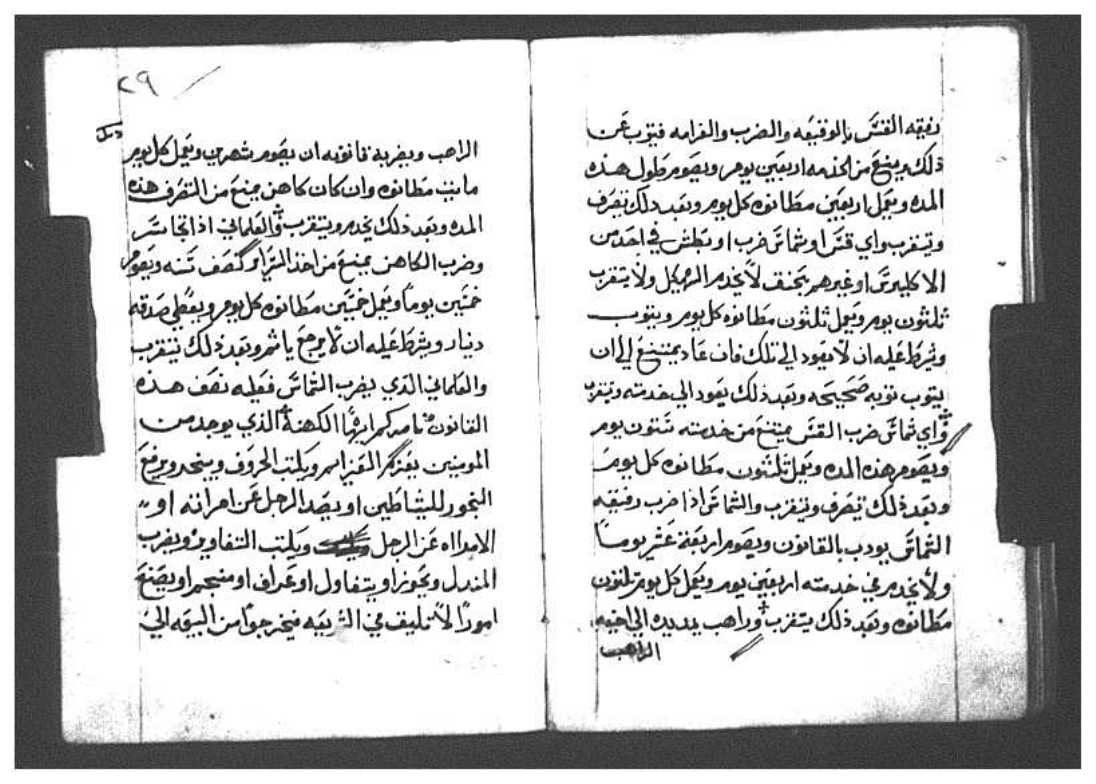 رفيقه القس بالوقيعه والضرب والغرامه فيتوب عن
ذلك ويمنع من الخدمه اربعين يوم ويصوم طول هذه
المده ويعمل اربعين مطانوه كل يوم وبعد ذلك يتصرف
ويتقرب واي قس او شماس ضرب او بطش في احد من
الاكليرس او غيرهم بحنق لا يخدم الهيكل ولا يتقرب
ثلثون يوم ويعمل ثلثون مطانوه كل يوم ويتوب
ويشرط عليه ان لا يعود الي تلك فان عاد يمتنع الي ان
يتوب توبه صحيحه وبعد ذلك يعود الي خدمته ويتقرب
واي شماس ضرب القس يمتنع من خدمته ستون يوم
ويصوم هذه المده ويعمل ثلثون مطانوه كل يوم
وبعد ذلك يتصرف ويتقرب والشماس اذا ضرب رفيقه
الشماس يودب بالقانون ويصوم اربعة عشر يوماً
ولا يخدم في خدمته اربعين يوم ويعمل كل يوم ثلثون
مطانوه وبعد ذلك يتقرب وراهب يمد يده الي اخيه
الراهب
٢٩
الراهب ويضربه قانونه ان يصوم شهرين ويعمل كل يوم
مايتي مطانوه وان كان كاهن يمنع من التصرف هذه
المده وبعد ذلك يخدم ويتقرب والعلماني اذا تجاسر
وضرب الكاهن يمنع من اخذ السراير نصف سنه ويصوم
خمسين يوماً ويعمل خمسين مطانوه كل يوم ويعطي صدقه
دينار ويشرط عليه ان لا يرجع ياثم وبعد ذلك يتقرب
والعلماني الذي يضرب الشماس فعليه نصف هذه
القانون نامركم ايها الكهنة الذي يوجد من
المومنين يعزم العزايم ويكتب الحروف وينجم ويرفع
البخور للشياطين او يصد الرجل عن امراته او
الامراه عن الرجل ويكتب التفاوير ويضرب
المندل ويحوز او يتفاول او عراف او منجم او يصنع
اموراً لا تليق في الشريعه فيخرجوا من البيعه الي